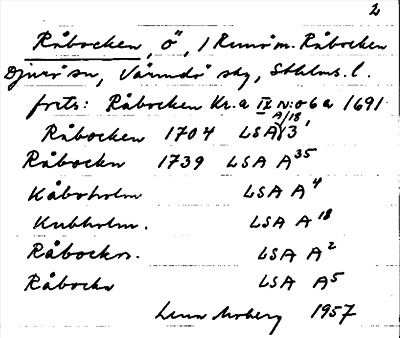 2
Råbocken, ö, / Runö m. Råbocken
Djurö sn, Värmdö skg, Sthlms. l.
forts: Råbocken Kr.a IV N:o 6 a 1691
Råbocken 1704 LSA A/18, 3
Råbockn 1739 LSA A35
Kåboholm LSA A4
Kubholm. LSA A18
Råbockn. LSA A2
Råbockn LSA A5
Lena Moberg 1957